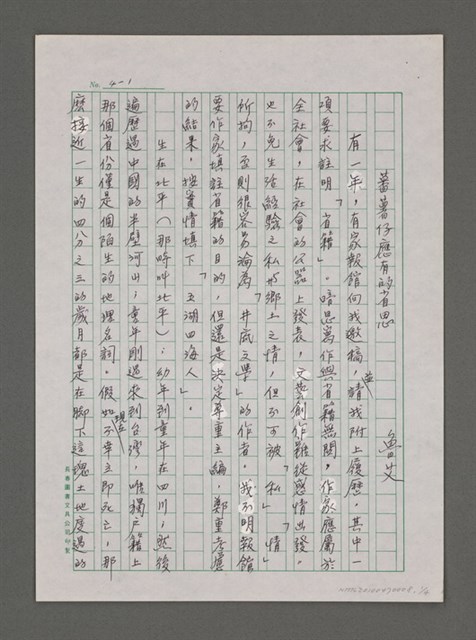 No. 4-1
蕃薯仔應有的省思
魯艾
有一年，有家報館向我邀稿，並請我附上履歷，其中一
項要求註明「省籍」。暗思寫作與省籍無關，作家應屬於
全社會，在社會的公器上發表，文藝創作雖從感情出發，
也不免生活經驗之私或鄉土之情，但不可被「私」「情」
所拘，否則很容易淪為「井底文學」的作者。我不明報館
要作家填註省籍的目的，但還是決定尊重主編，鄭重考慮
的結果，按實情填下「五湖四海人」。
生在北平（那時叫北平）；幼年到童年在四川，就後
遍歷過中國的半壁河山；童年剛過來到台灣，唯獨戶籍上
那個省份僅是個陌生的地理名詞。假如現在不幸立即死亡，那
麼接近一生的四分之三的歲月都是在腳下這塊土地度過的
長春圖書文具公司印製